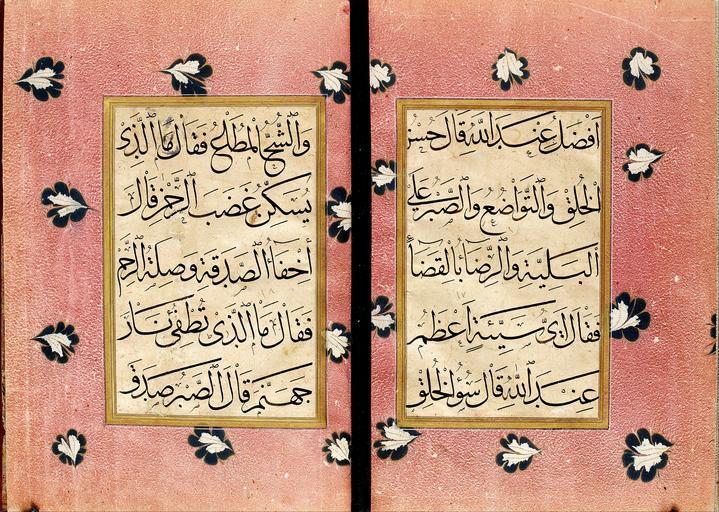 افضل عند الله قال حسن
الخلق والتواضع والصبر على
البلية والرضا بالقضاء
فقال اى سيئة اعظم
عند الله قال سوء الخلق
والشح المطاع فقال ما الذى
يسكن غضب الرحمن قال
أخفاء الصدقة وصلة الرحم
فقال ما الذى تطفئ نار
جهنم قال الصبر صدق